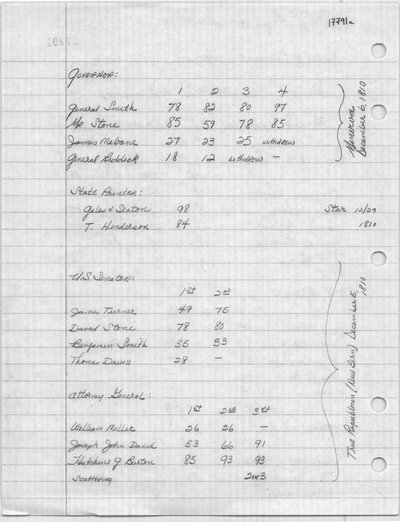 17791a
GOVERNOR:
1 2 3 4
General Smith 78 82 80 97
Mr Stone 85 59 78 85
James Mebane 27 23 25 withdrew
General Riddick 18 12 withdrew —
Minerva
December 6, 1810
State Printer:
Gales & Seaton 98
T. Henderson 84
Star 12/27
1810
U.S. Senator:
1st 2nd
James Turner 49 75
David Stone 78 80
Benjamin Smith 35 33
Thomas Davis 28 —
Attorney General:
1st 2nd 3rd
William Miller 26 26 —
Joseph John Daniel 53 66 91
Hutchins G Burton 85 93 93
Scattering 2or3
True Republican (New Bern) December 5,
1810